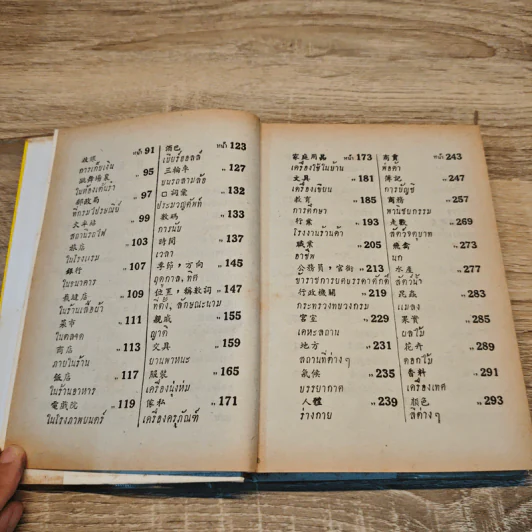 收賬 หน้า 91
การเก็บเงิน
跳舞場裏 „ 95
ในห้องเต้นรำ
郵政局 „ 97
ที่กรมไปรษณีย์
火車站 „ 99
สถานีรถไฟ
旅店 „ 103
ในโรงแรม
銀行 „ 107
ในธนาคาร
裁縫店 „ 109
ในร้านเสื้อผ้า
菜市 „ 111
ในตลาด
商店 „ 113
ภายในร้าน
飯店 „ 117
ในร้านอาหาร
電戲院 „ 119
ในโรงภาพยนตร์
酒巴 หน้า 123
เบียร์ฮอลล์
三輪車 „ 127
ขบวนสามล้อ
口詞彙 „ 132
ประมวญศัพท์
數碼 „ 133
การนับ
時間 „ 137
เวลา
季節，方向 „ 145
ฤดูกาล, ทิศ
位置，稱數詞 „ 147
ที่ตั้ง, ลักษณะนาม
親戚 „ 155
ญาติ
„ 159
ยานพาหนะ
服裝 „ 165
เครื่องนุ่งห่ม
傢私 „ 171
เครื่องครุภัณฑ์
家庭用品 หน้า 173
เครื่องใช้ในบ้าน
文具 „ 181
เครื่องเขียน
教育 „ 185
การศึกษา
行業 „ 193
โรงงานร้านค้า
職業 „ 205
อาชีพ
公務員，官銜 „ 213
ข้าราชการยศบรรดาศักดิ์
行政機關 „ 219
กระทรวงทบวงกรม
宮室 „ 229
เคหะสถาน
地方 „ 231
สถานที่ต่าง ๆ
氣候 „ 235
บรรยากาศ
人體 „ 239
ร่างกาย
商賈 หน้า 243
พ่อค้า
簿記 „ 247
การบัญชี
商務 „ 257
พานิชยกรรม
走獸 „ 269
สัตว์จตุบาท
飛禽 „ 273
นก
水產 „ 277
สัตว์น้ำ
昆蟲 „ 283
แมลง
果實 „ 285
ผลไม้
花卉 „ 289
ดอกไม้
香料 „ 291
เครื่องเทศ
顏色 „ 293
สีต่าง ๆ